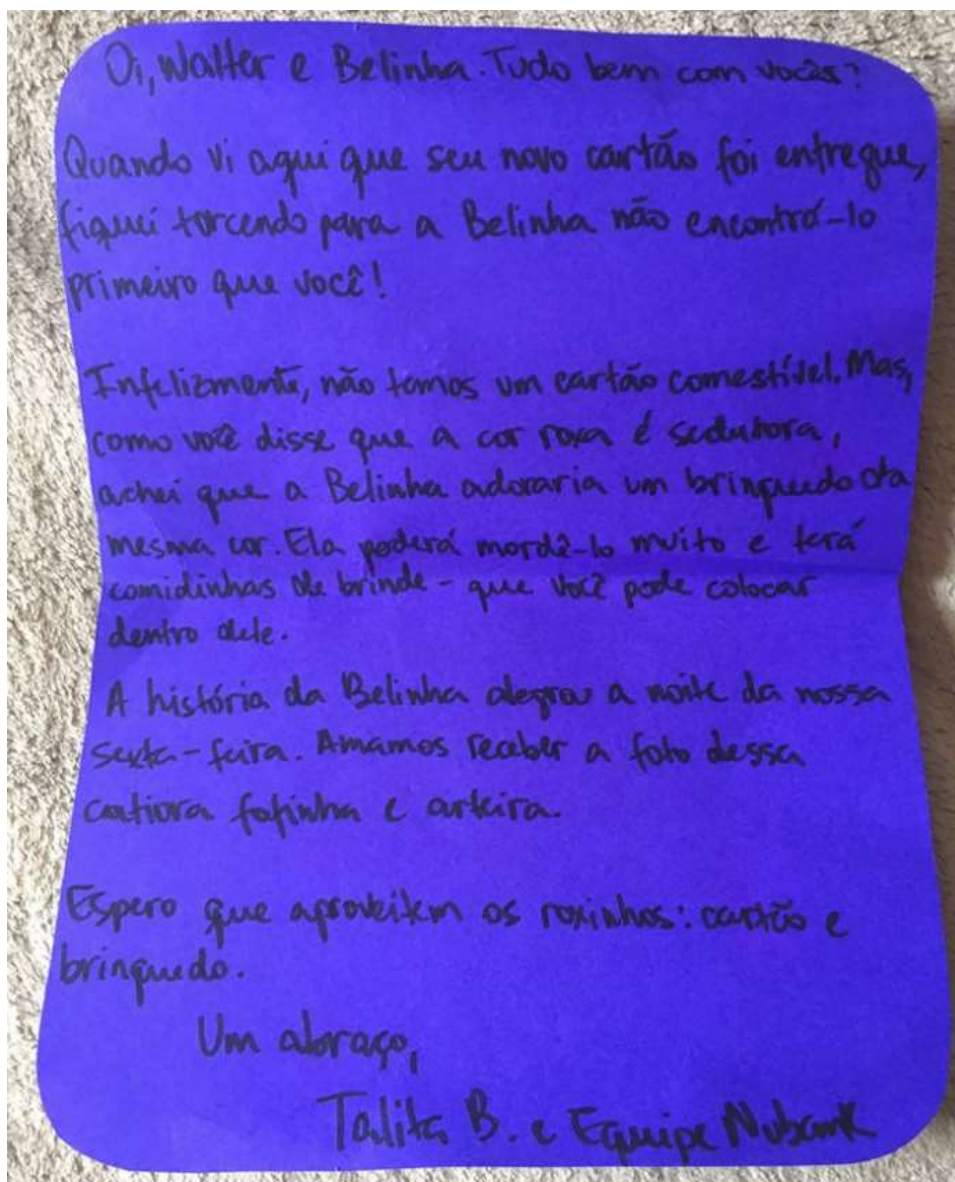 Oi, Walter e Belinha. Tudo bem com vocês?
Quando vi aqui que seu novo cartão foi entregue,
fiquei torcendo para a Belinha não encontrá-lo
primeiro que você!
Infelizmente, não temos um cartão comestível. Mas,
como você disse que a cor roxa é sedutora,
achei que a Belinha adoraria um brinquedo da
mesma cor. Ela poderá mordê-lo muito e terá
comidinhas de brinde - que você pode colocar
dentro dele.
A história da Belinha alegrou a noite da nossa
sexta-feira. Amamos receber a foto dessa
catiora fofinha e arteira.
Espero que aproveitem os roxinhos: cartão e
brinquedo.
Um abraço,
Talita B. e Equipe Nubank